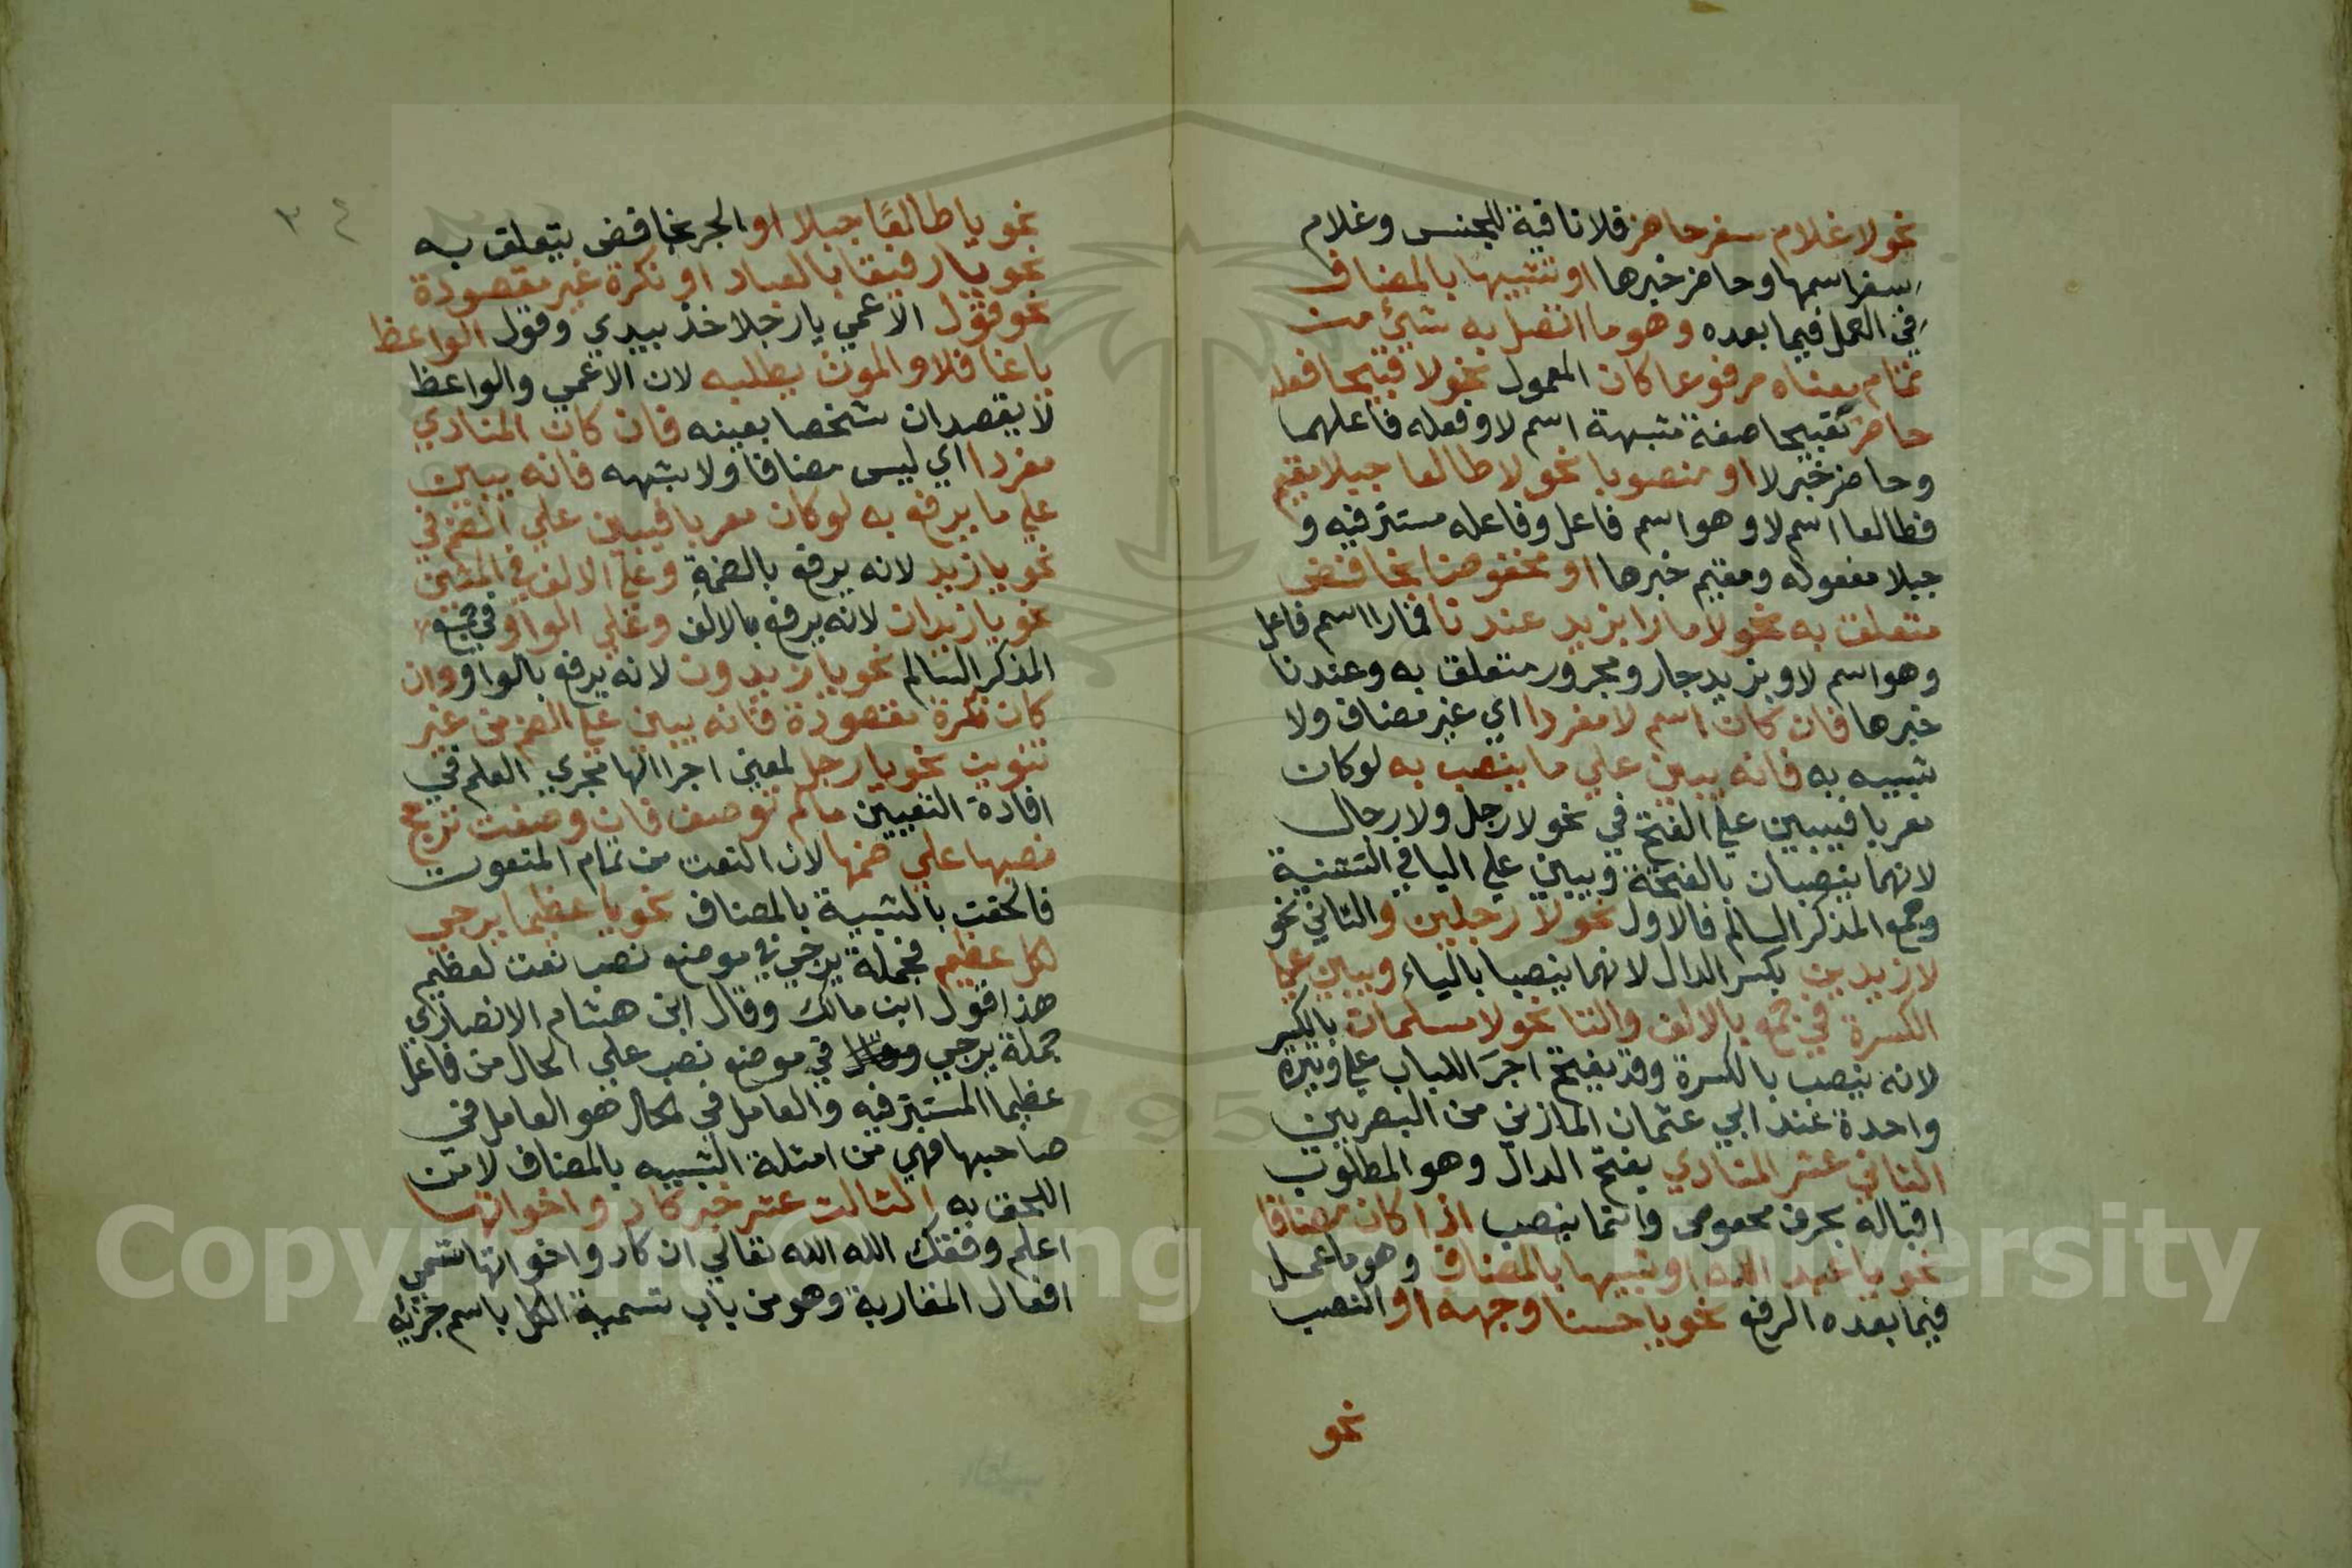 نحو لا غلام سفر حاضر فلا نافية للجنس وغلام
سفر اسمها وحاضر خبرها او شبيها بالمضاف
في العمل فيما بعده وهو ما اتصل به شيئ من
تمام معناه مرفوعا كان المعمول نحو لا قبيحا فعله
حاضر فقبيحا صفة مشبهة اسم لا وفعله فاعلهما
وحاضر خبر لا او منصوبا نحو لا طالعا جبلا مقيم
فطالعا اسم لا وهو اسم فاعل وفاعله مستتر فيه و
جبلا مفعوله ومقيم خبرها او مخفوضا بخافض
متعلق به نحو لا مارا بزيد عندنا فمارا اسم فاعل
وهو اسم لا وبزيد جار ومجرور متعلق به وعندنا
خبرها فان كان اسم لا مفردا اي غير مضاف ولا
شبيه به فانه يبني علي ما ينصب به لو كان
معربا فيبين علي الفتح في نحو لا رجل ولا رجال
لانهما ينصبان بالفتحة ويبني علي اليا في التثنية
وجمع المذكر السالم فالاول نحو لا رجلين والثاني نحو
لا زيدين بكسر الدال لانهما ينصبا بالياء ويبني علي
الكسرة في جمع بالالف والتا نحو لا مسلمات بالكسر
لانه ينصب بالكسرة وقد يفتح اجرَ اللباب علي وتيرة
واحدة عند ابي عثمان المازني من البصريين
الثاني عشر المنادي بفتح الدال وهو المطلوب
اقباله بحرف مخصوص وانما ينصب اذا كان مضافا
نحو يا عبد الله او شبيها بالمضاف وهو ما عمل
فيما بعده الرفع نحو يا حسنا وجهه او النصب
نحو
٣٤
نحو يا طالعًا جبلا او الجر بخافض يتعلق به
نحو يا رفيقا بالعباد او نكرة غير مقصودة
نحو قول الاعمي يا رجلا خذ بيدي وقول الواعظ
يا غافلا والموت يطلبه لان الاعمي والواعظ
لا يقصدان شخصا بعينه فان كان المنادي
مفردا اي ليس مضافا ولا شبهه فانه يبين
علي ما يرفع به لو كان معربا فيبين علي الضم في
نحو يا زيد لانه يرفع بالضمةِ وعلي الالف في المثني
نحو يا زيدان لانه يرفع بالالف وعلي الواو في جمع
المذكر السالم نحو يا زيدون لانه يرفع بالواو وان
كان نكرة مقصودة فانه يبين علي الضم من غير
تنوين نحو يا رجل لمعين اجرا لها مجري العلم في
افادة التعيين ما لم توصف فان وصفت ترجح
نصبها علي ضمها لان النعت من تمام المنعوت
فالحقت بالشبية بالمضاف نحو يا عظيما يرجي
لكل عظيم فجملة يرجي في موضع نصب نعت لعظيم
هذا قول ابن مالك وقال ابن هشام الانصاري
جملة يرجي في موضع نصب علي الحال من فاعل
عظيما المستتر فيه والعامل في لحال هو العامل في
صاحبها فهي من امثلة الشبيه بالمضاف لا من
اللحق به الثالث عشر خبر كاد واخواتها
اعلم وفقك الله الله تعالي ان كاد واخواتها تسمي
افعال المقاربة وهو من باب تسمية الكل باسم جزئه
Copyright © King Saud University
195